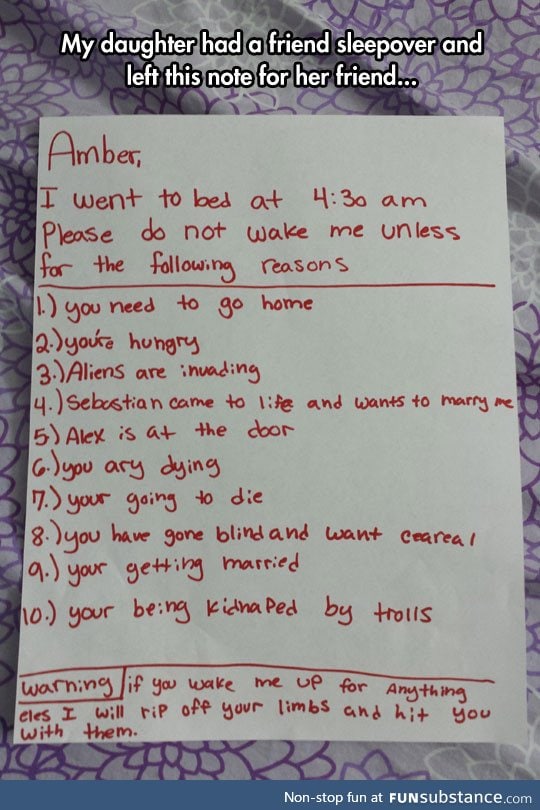 My daughter had a friend sleepover and
left this note for her friend...
Amber,
I went to bed at 4:30 am
Please do not wake me unless
for the following reasons
1.) you need to go home
2.) you're hungry
3.) Aliens are invading
4.) Sebastian came to life and wants to marry me
5) Alex is at the door
6.) you ary dying
7.) your going to die
8.) you have gone blind and want ceareal
9.) your getting married
10.) your being kidnaped by trolls
warning if you wake me up for anything
eles I will rip off your limbs and hit you
with them.
Non-stop fun at FUNsubstance.com